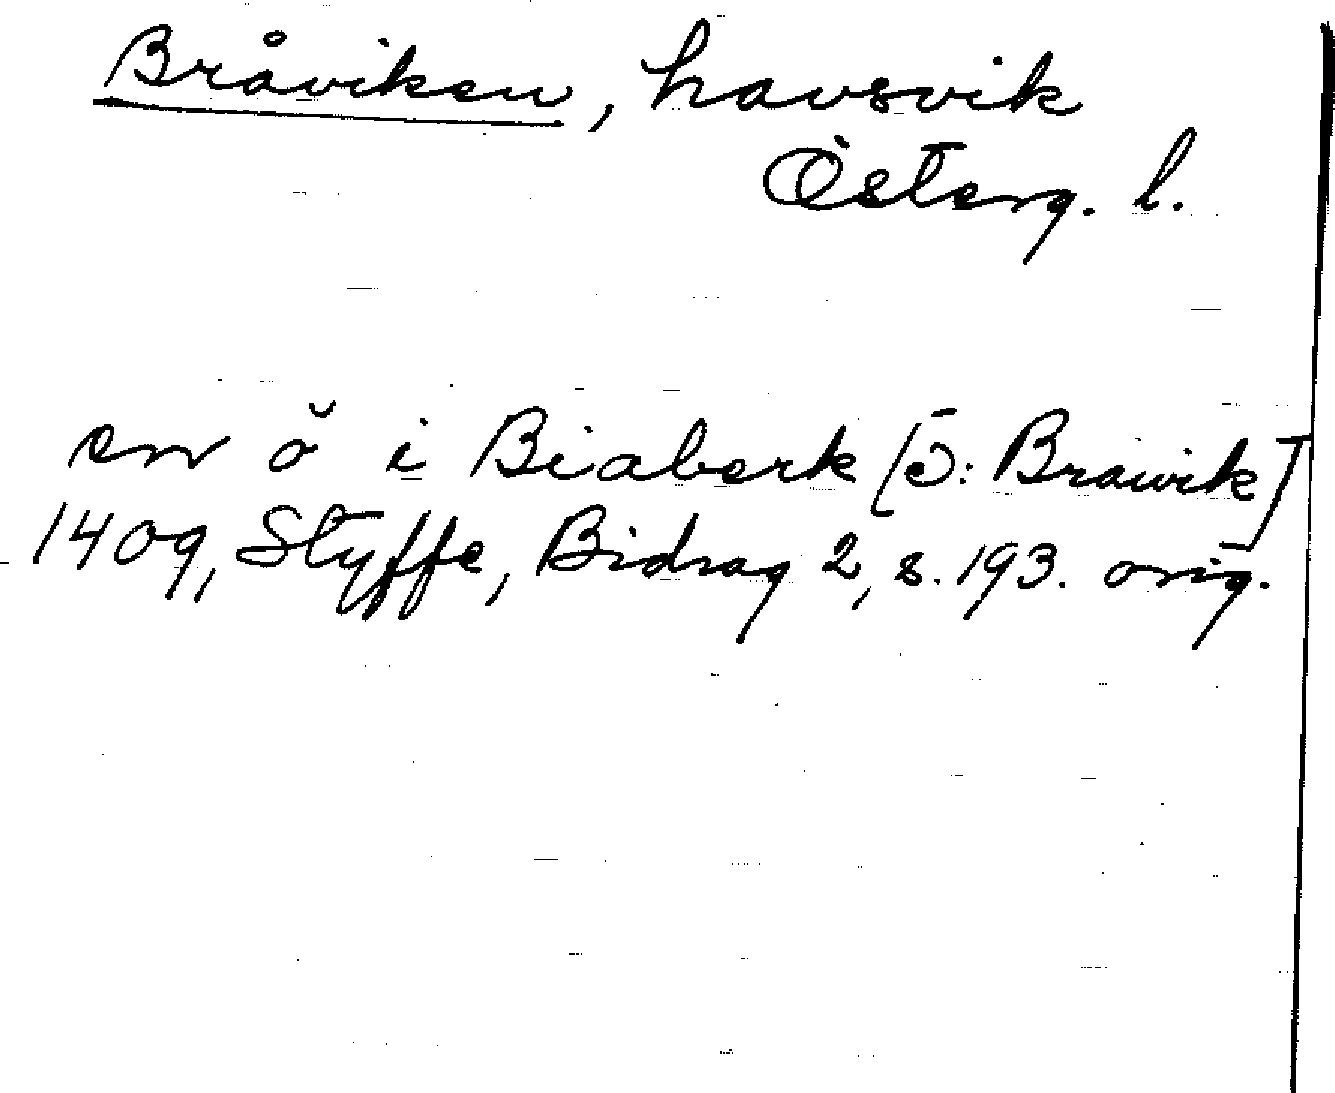 Bråviken, havsvik
Österg. l.
en ö i Biaberk [ɔ: Brawik]
1409, Styffe, Bidrag 2, s. 193. orig.